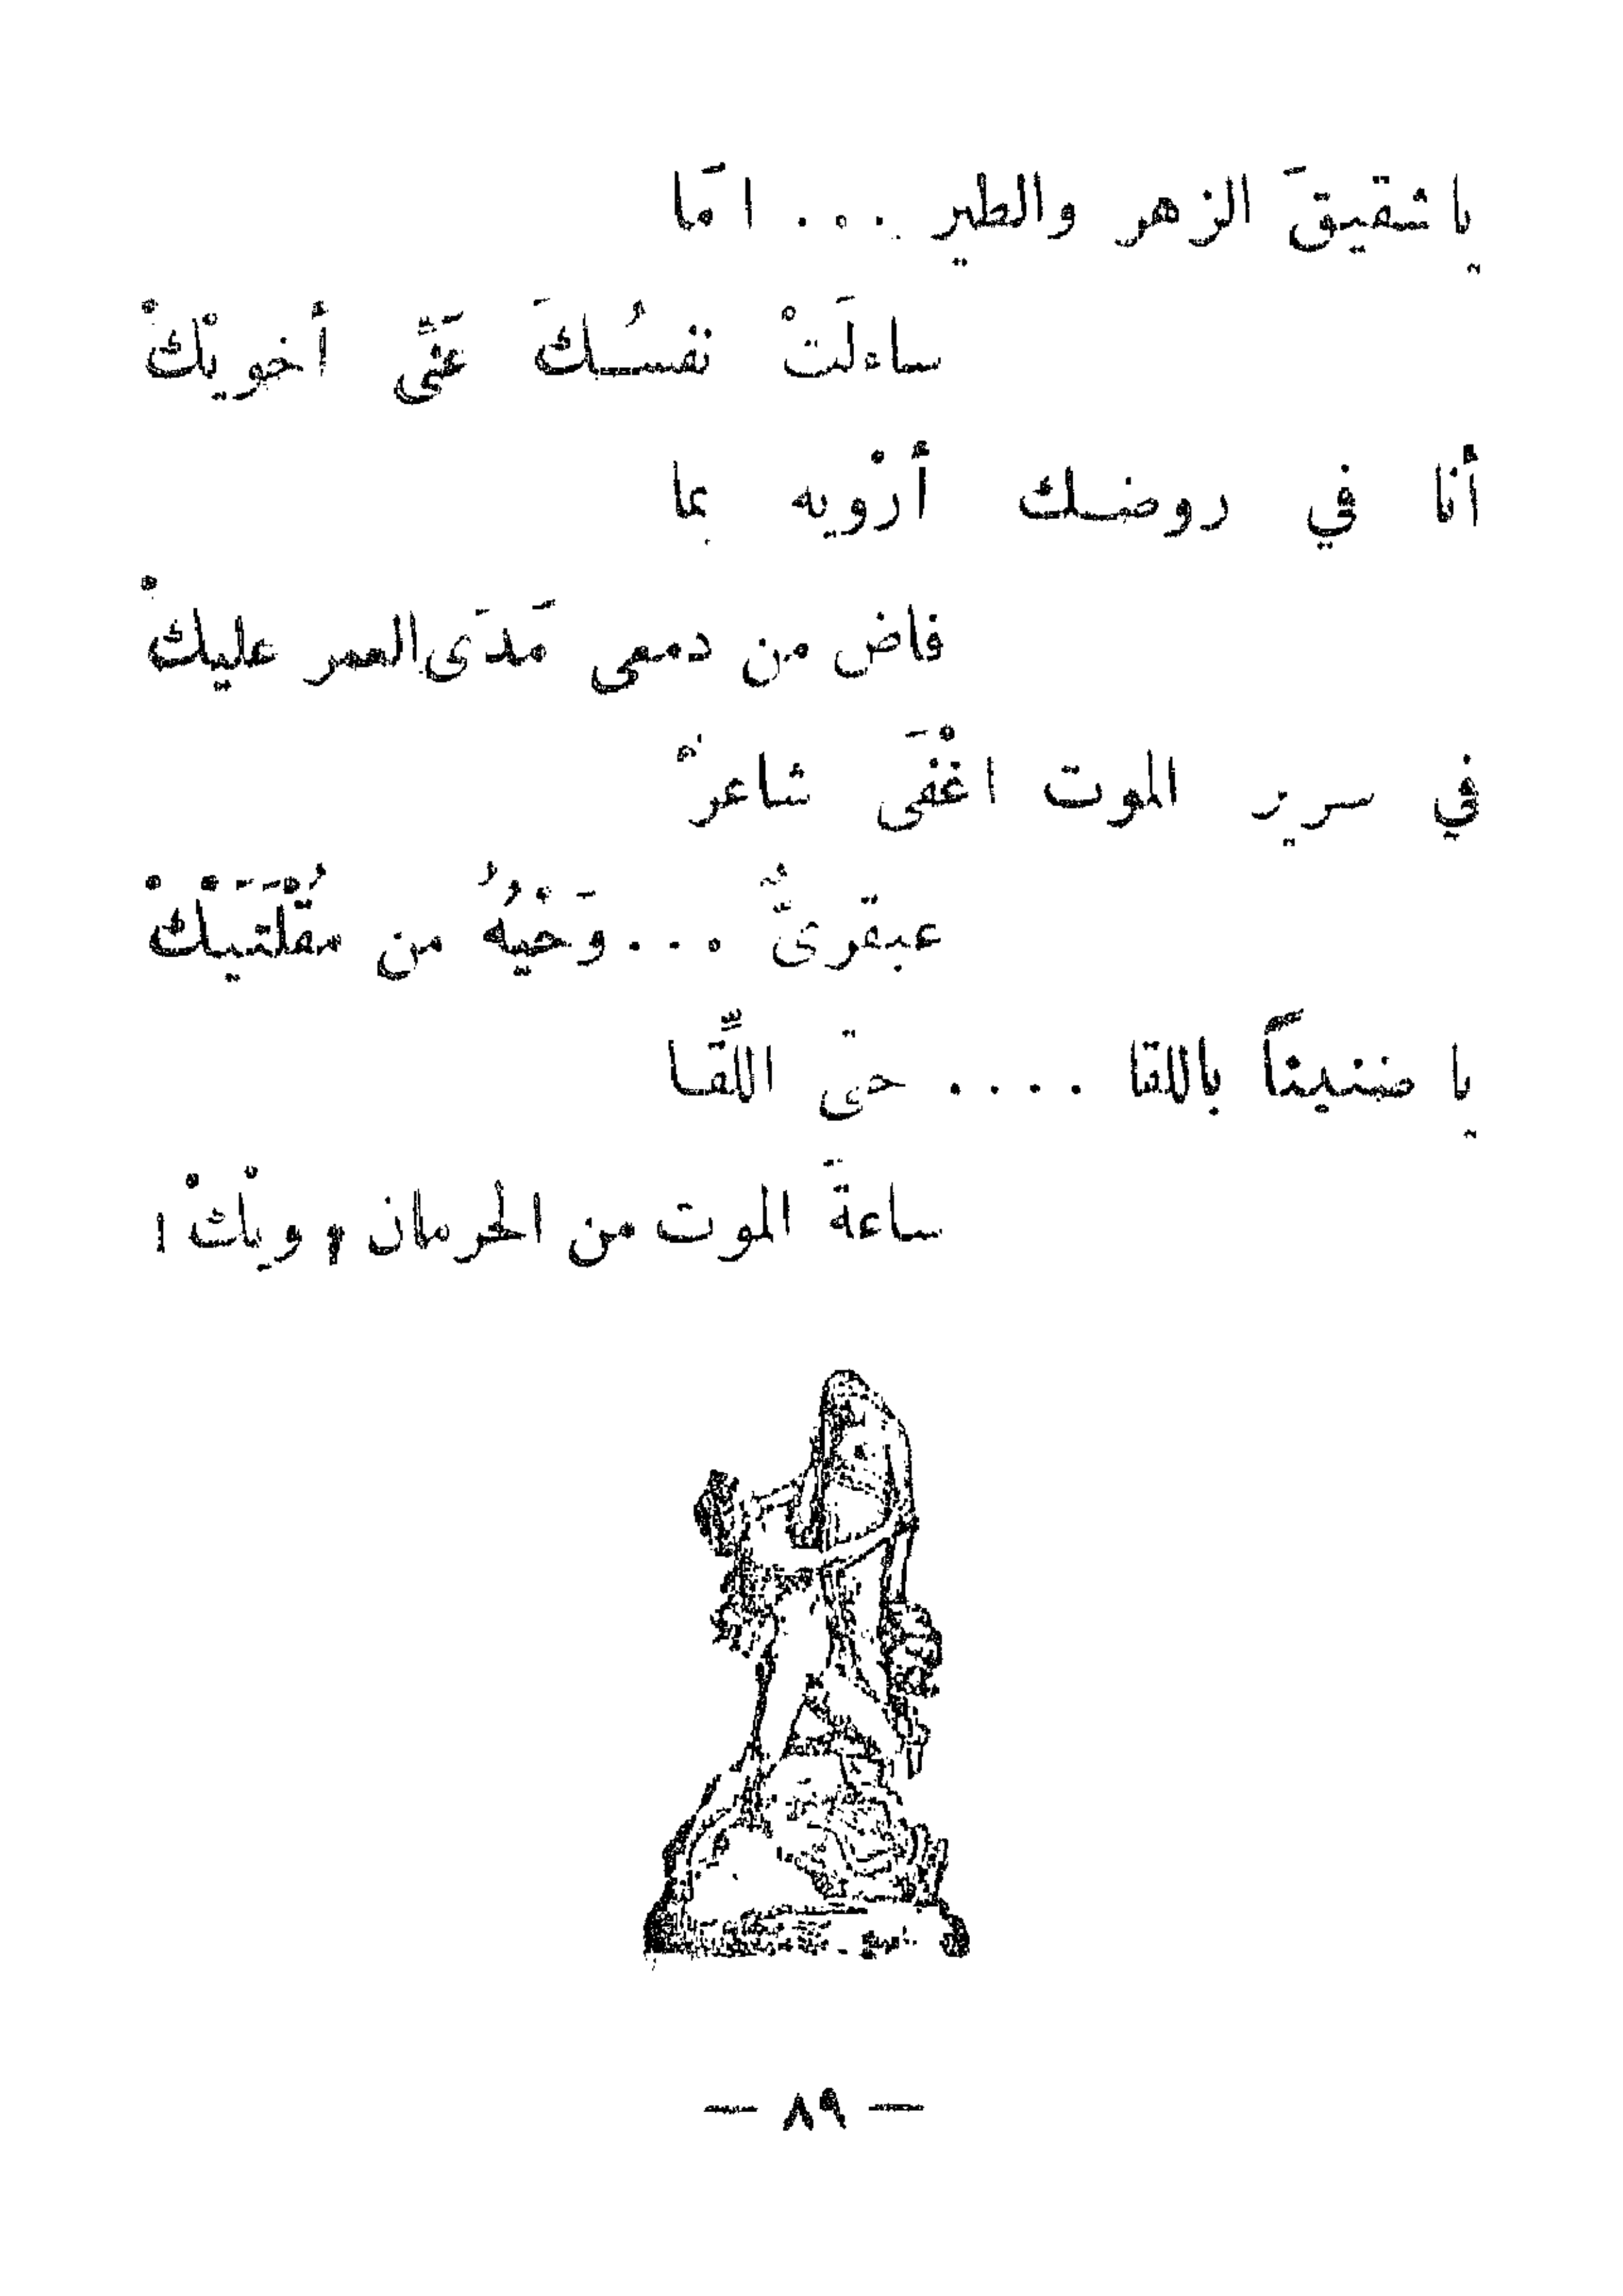 يا شقيقَ الزهر والطير ... امَّا
ساءلَتْ نفسُكَ عَنِّى أخويْكْ
أنا في روضك أرْويه بما
فاض من دمعى مَدَى العمر عليكْ
في سرير الموت اغْفَى شاعرٌ
عبقرىٌّ ... وَحْيُهُ من مُقْلَتَيْكْ
يا ضنيناً باللقا .... حتى اللِّقا
ساعةَ الموت من الحرمان ، ويْكْ !
— ٨٩ —